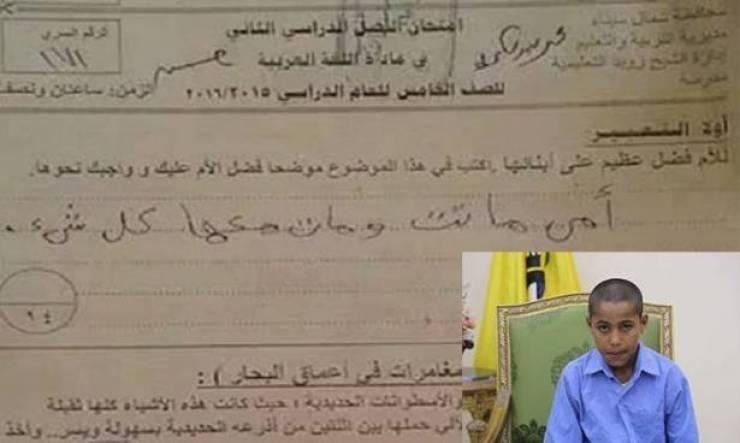 محافظة شمال سيناء
مديرية التربية والتعليم
إدارة الشيخ زويد التعليمية
مدرسة
امتحان الفصل الدراسي الثاني
في مادة اللغة العربية
للصف الخامس للعام الدراسي ٢٠١٦/٢٠١٥
الرقم السري
الزمن: ساعتان ونصف
أولا التعبير:
للأم فضل عظيم على أبنائها .اكتب في هذا الموضوع موضحا فضل الأم عليك و واجبك نحوها.
أمن ماتت ومات معها كل شيء .
مغامرات في أعماق البحار ) :
والأسطوانات الحديدية ؛ حيث كانت هذه الأشياء كلها ثقيلة
لآلي حملها بين اثنتين من أذرعه الحديدية بسهولة ويسر.. وأخذ